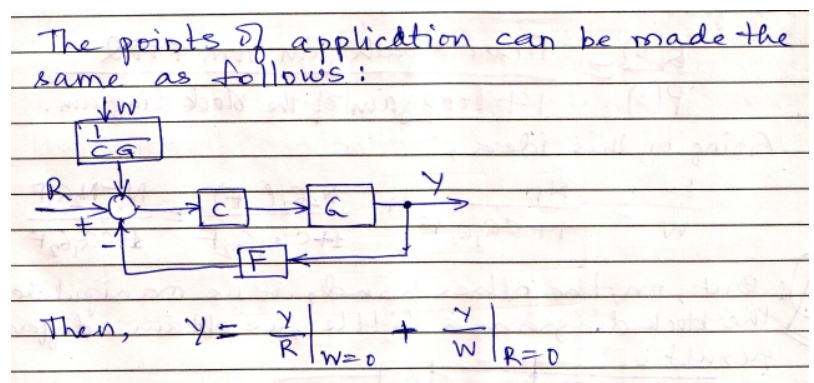 The points of application can be made the
same as follows:
↓W
1/CG
R
Y
C
G
+
-
F
Then, Y = Y/R|W=0 + Y/W|R=0